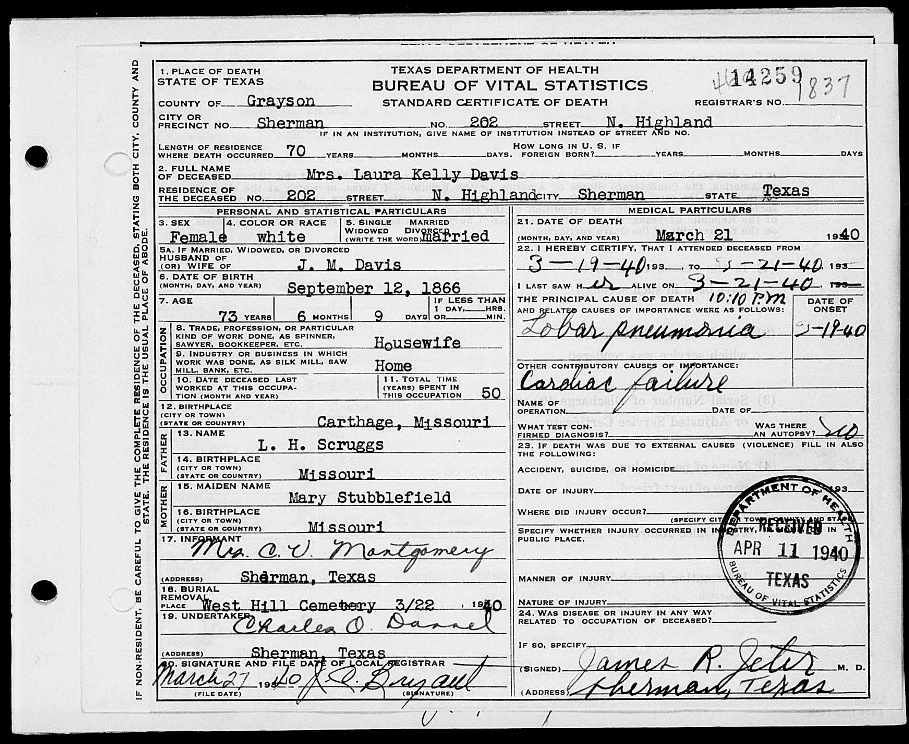 TEXAS DEPARTMENT OF HEALTH
BUREAU OF VITAL STATISTICS
STANDARD CERTIFICATE OF DEATH
14259
REGISTRAR'S NO. 1837
IF NON-RESIDENT, BE CAREFUL TO GIVE THE COMPLETE RESIDENCE OF THE DECEASED, STATING BOTH CITY, COUNTY AND
STATE. THE RESIDENCE IS THE USUAL PLACE OF ABODE.
1. PLACE OF DEATH
STATE OF TEXAS
COUNTY OF Grayson
CITY OR
PRECINCT NO. Sherman NO. 202 STREET N. Highland
IF IN AN INSTITUTION, GIVE NAME OF INSTITUTION INSTEAD OF STREET AND NO.
LENGTH OF RESIDENCE
WHERE DEATH OCCURRED 70 YEARS MONTHS DAYS.
HOW LONG IN U. S. IF
FOREIGN BORN? YEARS MONTHS DAYS
2. FULL NAME
OF DECEASED Mrs. Laura Kelly Davis
RESIDENCE OF
THE DECEASED NO. 202 STREET N. Highland CITY Sherman STATE Texas
PERSONAL AND STATISTICAL PARTICULARS
3. SEX
Female
4. COLOR OR RACE
white
5. SINGLE MARRIED
WIDOWED DIVORCED
(WRITE THE WORD) married
5A. IF MARRIED, WIDOWED, OR DIVORCED
HUSBAND OF
(OR) WIFE OF J. M. Davis
6. DATE OF BIRTH
(MONTH, DAY, AND YEAR) September 12, 1866
7. AGE
73 YEARS 6 MONTHS 9 DAYS
IF LESS THAN
1 DAY, HRS.
OR MIN.
OCCUPATION
8. TRADE, PROFESSION, OR PARTICULAR
KIND OF WORK DONE, AS SPINNER,
SAWYER, BOOKKEEPER, ETC. Housewife
9. INDUSTRY OR BUSINESS IN WHICH
WORK WAS DONE, AS SILK MILL, SAW
MILL, BANK, ETC. Home
10. DATE DECEASED LAST
WORKED AT THIS OCCUPA-
TION (MONTH AND YEAR)
11. TOTAL TIME
(YEARS) SPENT IN
THIS OCCUPATION 50
12. BIRTHPLACE
(CITY OR TOWN)
(STATE OR COUNTRY) Carthage, Missouri
FATHER
13. NAME
L. H. Scruggs
14. BIRTHPLACE
(CITY OR TOWN)
(STATE OR COUNTRY) Missouri
MOTHER
15. MAIDEN NAME
Mary Stubblefield
16. BIRTHPLACE
(CITY OR TOWN)
(STATE OR COUNTRY) Missouri
17. INFORMANT
Mrs. C. V. Montgomery
(ADDRESS) Sherman, Texas
18. BURIAL
REMOVAL
PLACE West Hill Cemetery 3/22, 1940
19. UNDERTAKER
Charles O. Dannel
(ADDRESS) Sherman, Texas
20. SIGNATURE AND FILE DATE OF LOCAL REGISTRAR
March 27 1940
(FILE DATE) (SIGNATURE)
MEDICAL PARTICULARS
21. DATE OF DEATH
(MONTH, DAY, AND YEAR) March 21 1940
22. I HEREBY CERTIFY, THAT I ATTENDED DECEASED FROM
3-19-40 193 , TO 3-21-40, 193
I LAST SAW HER ALIVE ON 3-21-40, 193
THE PRINCIPAL CAUSE OF DEATH 10:10 P.M
AND RELATED CAUSES OF IMPORTANCE WERE AS FOLLOWS:
Lobar pneumonia
DATE OF
ONSET
3-19-40
OTHER CONTRIBUTORY CAUSES OF IMPORTANCE:
Cardiac failure
NAME OF
OPERATION DATE OF
WHAT TEST CON-
FIRMED DIAGNOSIS?
WAS THERE
AN AUTOPSY? No
23. IF DEATH WAS DUE TO EXTERNAL CAUSES (VIOLENCE) FILL IN ALSO
THE FOLLOWING:
ACCIDENT, SUICIDE, OR HOMICIDE
DATE OF INJURY 193
WHERE DID INJURY OCCUR?
(SPECIFY CITY OR TOWN, COUNTY AND STATE)
SPECIFY WHETHER INJURY OCCURRED IN INDUSTRY, IN HOME, OR IN
PUBLIC PLACE.
MANNER OF INJURY
NATURE OF INJURY
24. WAS DISEASE OR INJURY IN ANY WAY
RELATED TO OCCUPATION OF DECEASED?
IF SO, SPECIFY
(SIGNED) James R. Jeter M. D.
(ADDRESS) Sherman, Texas
DEPARTMENT OF HEALTH
RECEIVED
APR 11 1940
TEXAS
BUREAU OF VITAL STATISTICS